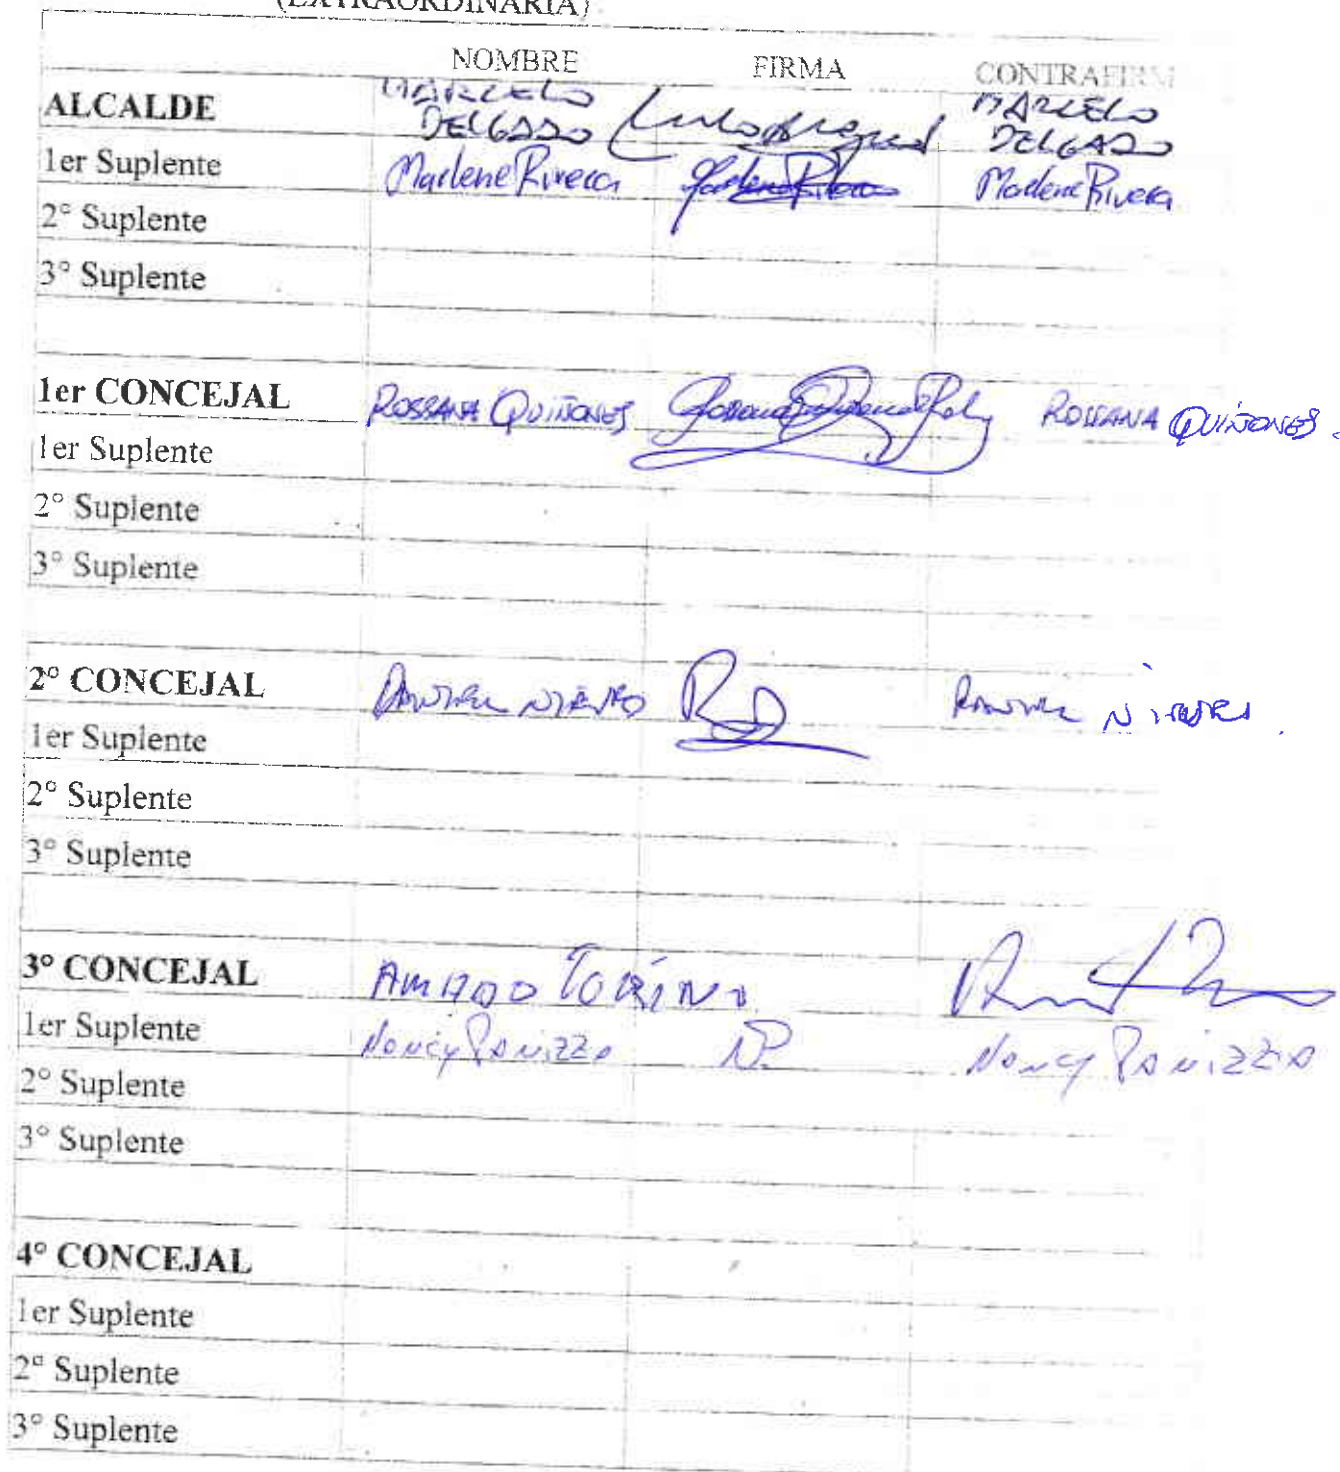 (EXTRAORDINARIA)
NOMBRE FIRMA CONTRAFIRM
ALCALDE MARCELO DELGADO MARCELO DELGADO
1er Suplente Marlene Rivera Marlene Rivera Marlene Rivera
2° Suplente
3° Suplente
1er CONCEJAL ROSSANA QUIÑONES ROSSANA QUIÑONES.
1er Suplente
2° Suplente
3° Suplente
2° CONCEJAL
1er Suplente
2° Suplente
3° Suplente
3° CONCEJAL AMADO TORINO
1er Suplente Nancy Panizza NP Nancy Panizza
2° Suplente
3° Suplente
4° CONCEJAL
1er Suplente
2° Suplente
3° Suplente